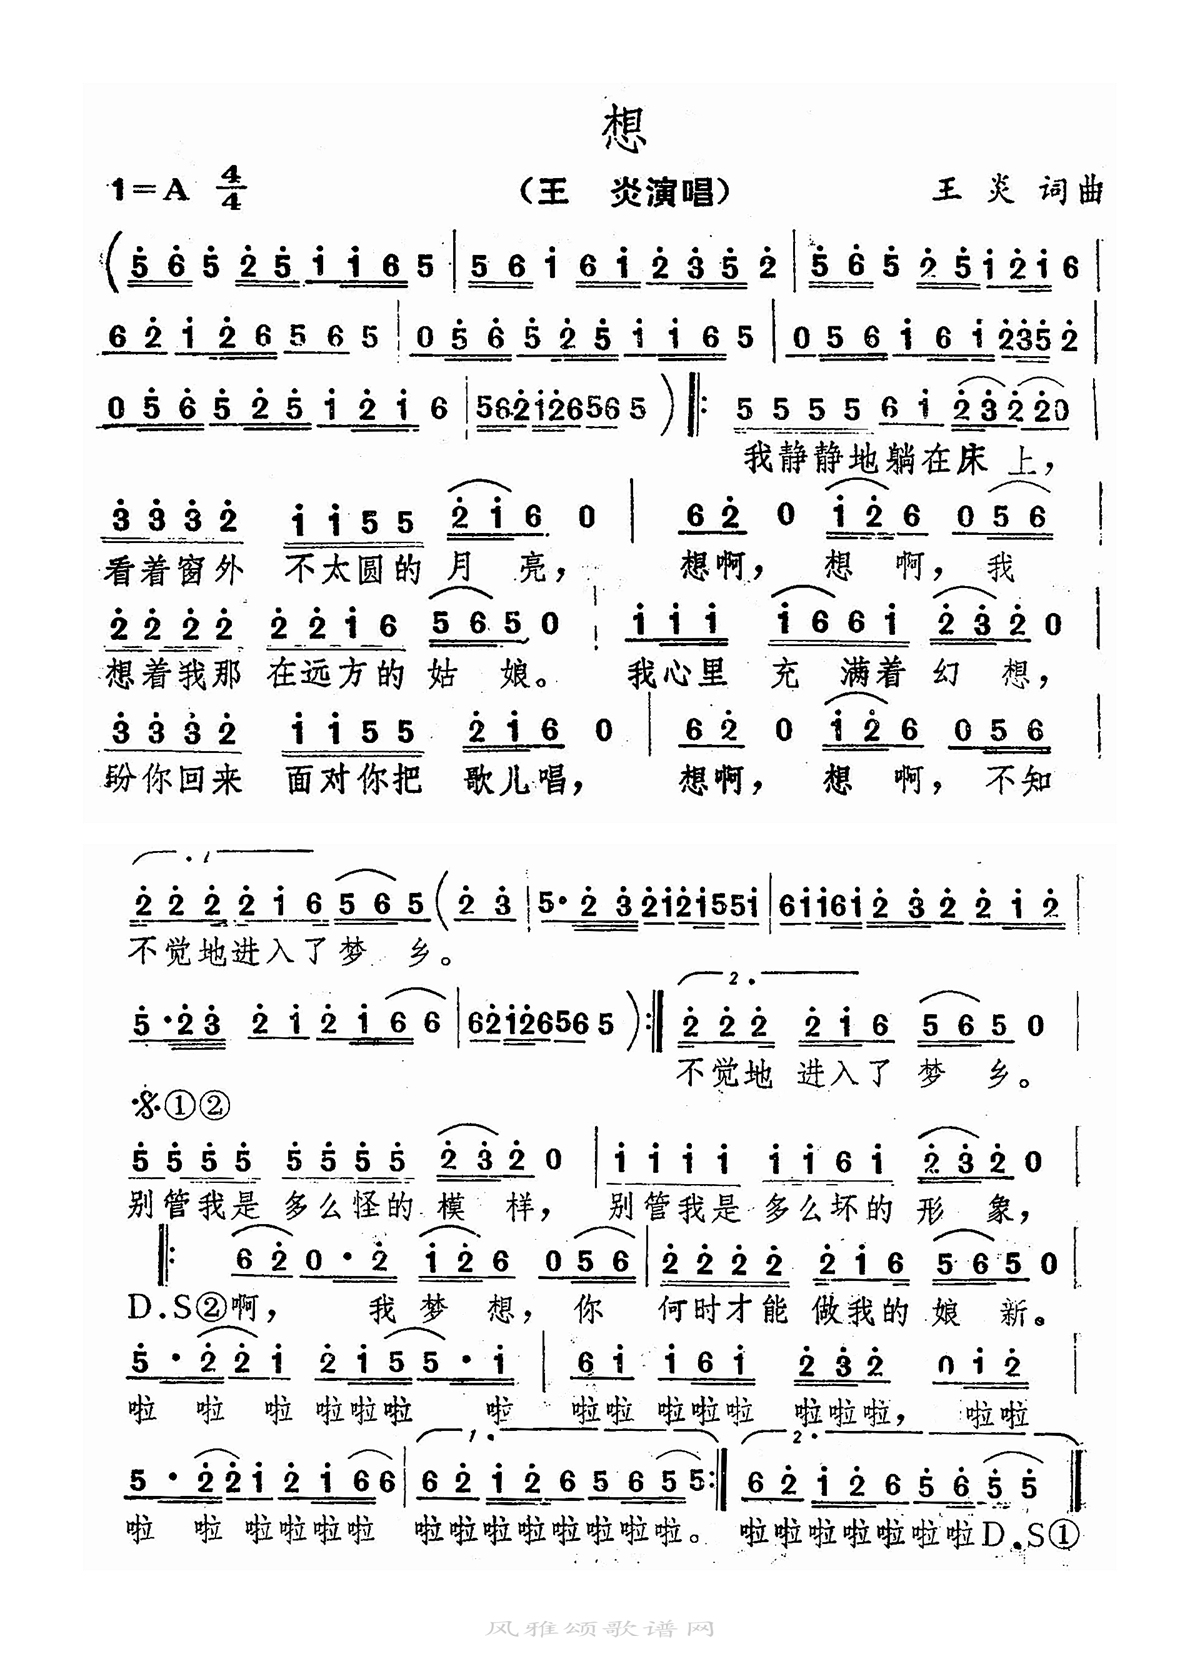 想
1=A 4/4 (王 炎演唱) 王 炎 词曲
(5 6 5 2 5 1 1 6 5 | 5 6 1 6 1 2 3 5 2 | 5 6 5 2 5 1 2 1 6 |
6 2 1 2 6 5 6 5 | 0 5 6 5 2 5 1 1 6 5 | 0 5 6 1 6 1 2 3 5 2 |
0 5 6 5 2 5 1 2 1 6 | 5 6 2 1 2 6 5 6 5 ) ‖: 5 5 5 5 6 1 2 3 2 2 0 |
我静静地躺在床 上,
3 3 3 2 1 1 5 5 2 1 6 0 | 6 2 0 1 2 6 0 5 6 |
看着窗外 不太圆的 月 亮, 想啊, 想 啊, 我
2 2 2 2 2 2 1 6 5 6 5 0 | 1 1 1 1 6 6 1 2 3 2 0 |
想着我那 在远方的 姑 娘。 我心里 充 满着 幻 想,
3 3 3 2 1 1 5 5 2 1 6 0 | 6 2 0 1 2 6 0 5 6 |
盼你回来 面对你把 歌儿唱, 想啊, 想 啊, 不知
1.
2 2 2 2 1 6 5 6 5 ( 2 3 | 5· 2 3 2 1 2 1 5 5 1 | 6 1 1 6 1 2 3 2 2 1 2 |
不觉地进入了梦 乡。
2.
5· 2 3 2 1 2 1 6 6 | 6 2 1 2 6 5 6 5 ) :‖ 2 2 2 2 1 6 5 6 5 0 |
不觉地 进入了 梦 乡。
𝄋①②
5 5 5 5 5 5 5 5 2 3 2 0 | 1 1 1 1 1 1 6 1 2 3 2 0 |
别管我是 多么怪的 模 样, 别管我是 多么坏的 形 象,
‖: 6 2 0 · 2 1 2 6 0 5 6 | 2 2 2 2 2 1 6 5 6 5 0 |
D.S②啊, 我 梦 想, 你 何时才能 做我的 娘 新。
5 · 2 2 1 2 1 5 5 · 1 | 6 1 1 6 1 2 3 2 0 1 2 |
啦 啦 啦 啦啦啦 啦 啦啦 啦啦啦 啦啦啦, 啦啦
1. 2.
5 · 2 2 1 2 1 6 6 | 6 2 1 2 6 5 6 5 5 :‖ 6 2 1 2 6 5 6 5 5 ‖
啦 啦 啦啦啦啦 啦啦啦啦啦啦啦啦。 啦啦啦啦啦啦啦D.S①
风雅颂歌谱网